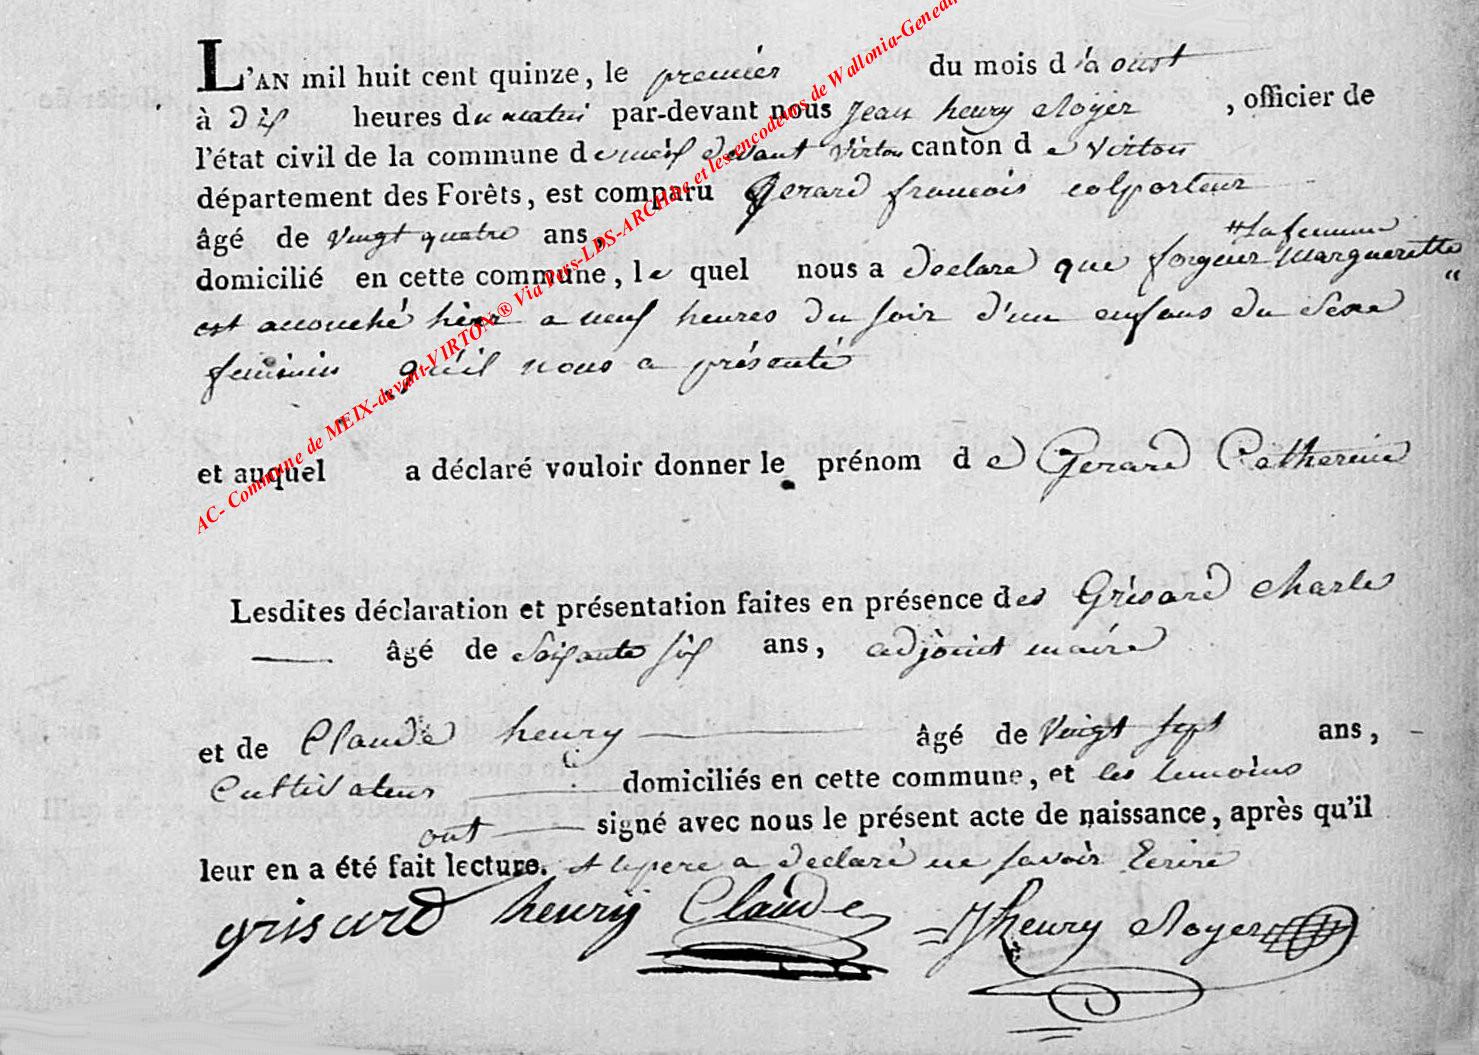 L'AN mil huit cent quinze, le premier du mois d'aoust
à Dix heures du matin par-devant nous Jean henry Noyer, officier de
l'état civil de la commune de meix devant Virton canton de Virton
département des Forêts, est comparu Gerard francois colporteur
âgé de vingt quatre ans,
#la femme
domicilié en cette commune, le quel nous a declaré que forgeur Marguerette "
est accouché hier a neuf heures du soir d'un enfans du Sexe
feminin qu'il nous a présenté
et auquel a déclaré vouloir donner le prénom de Gerard Catherine
Lesdites déclaration et présentation faites en présence des Grisard Charle
âgé de Soixante six ans, adjoint maire
et de Claude henry âgé de Vingt sept ans,
Cultivateur domiciliés en cette commune, et les temoins
ont signé avec nous le présent acte de naissance, après qu'il
leur en a été fait lecture. et le pere a declaré ne savoir Ecrire
grisard henry Claude Jhenry Noyer
AC- Commune de MEIX-devant-VIRTON® Via Pers-LDS-ARCHbe et les encodeurs de Wallonia-Genealo